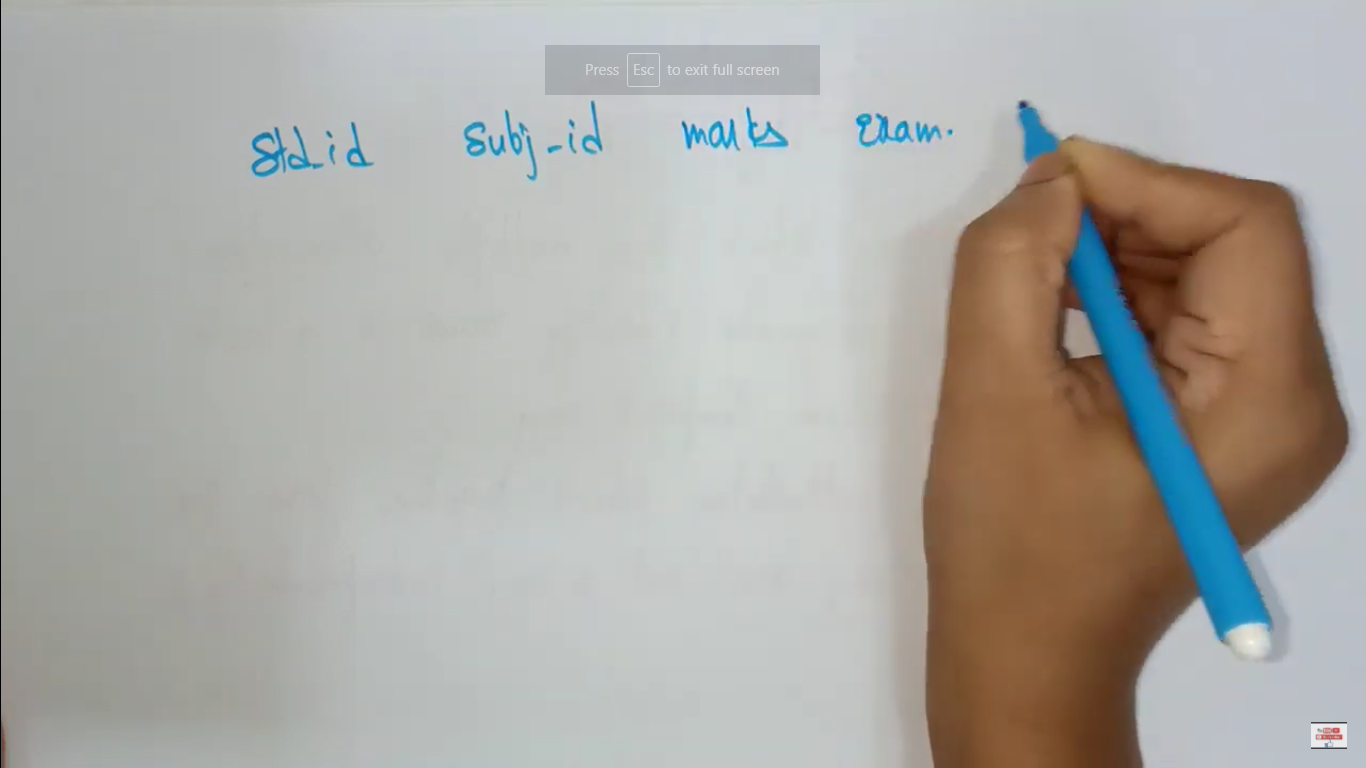 Press Esc to exit full screen
Std_id subj-id marks exam.